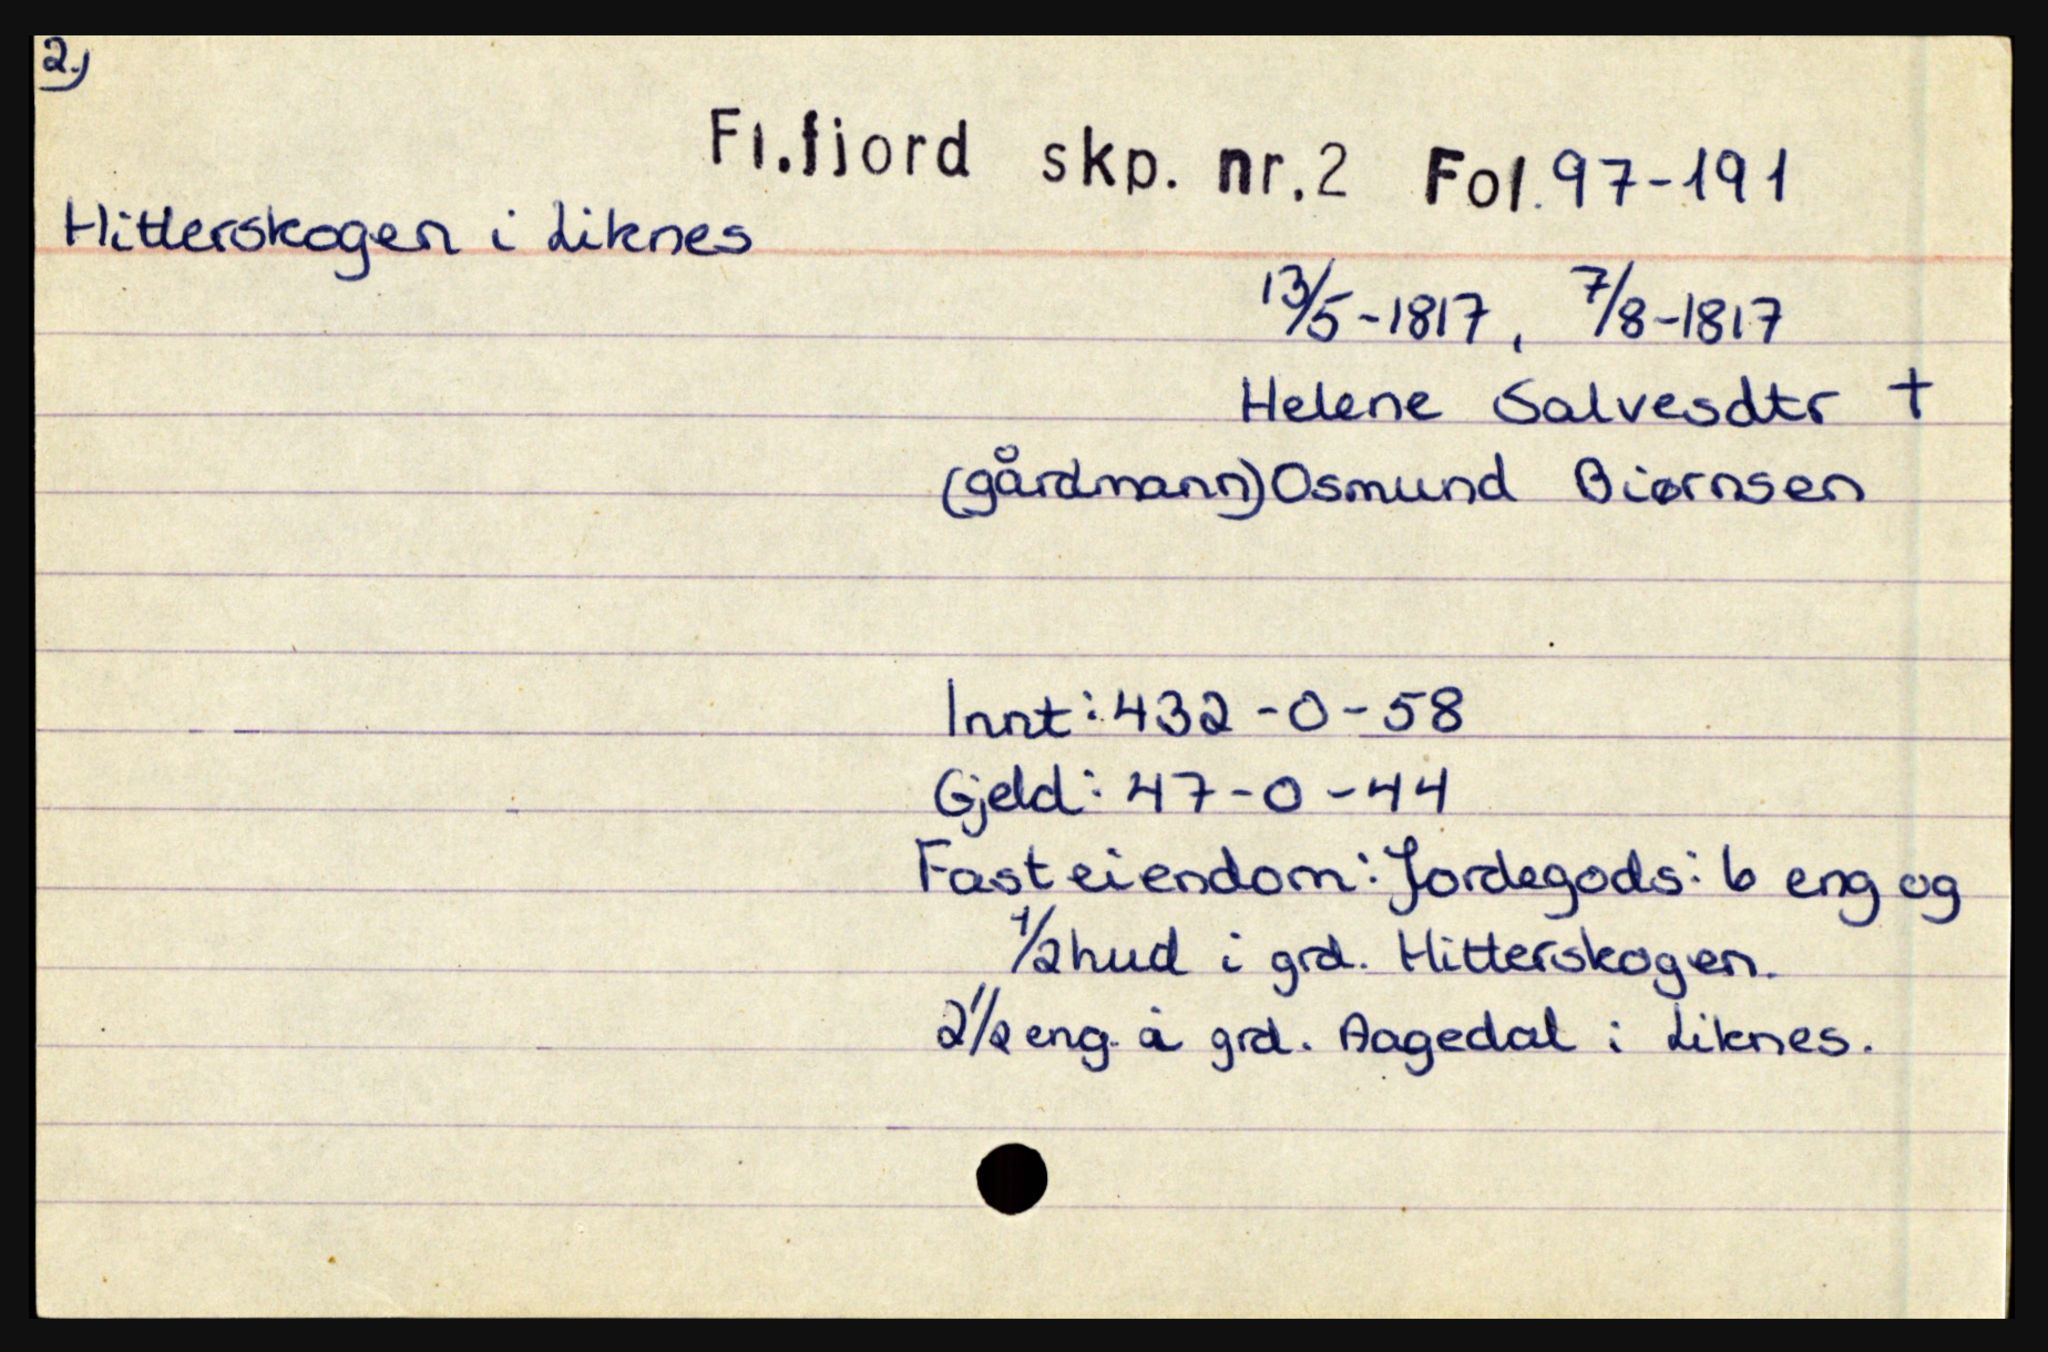 2.)
Fl.fjord skp. nr.2 Fol.97-191
Hitterskogen i Liknes
13/5-1817, 7/8-1817
Helene Salvesdtr +
(gårdmann) Osmund Biørnsen
Innt: 432-0-58
Gjeld: 47-0-44
Fast eiendom: Jordegods: 6 eng og
1/2 hud i grd. Hitterskogen.
2 1/2 eng. i grd. Aagedal i Liknes.